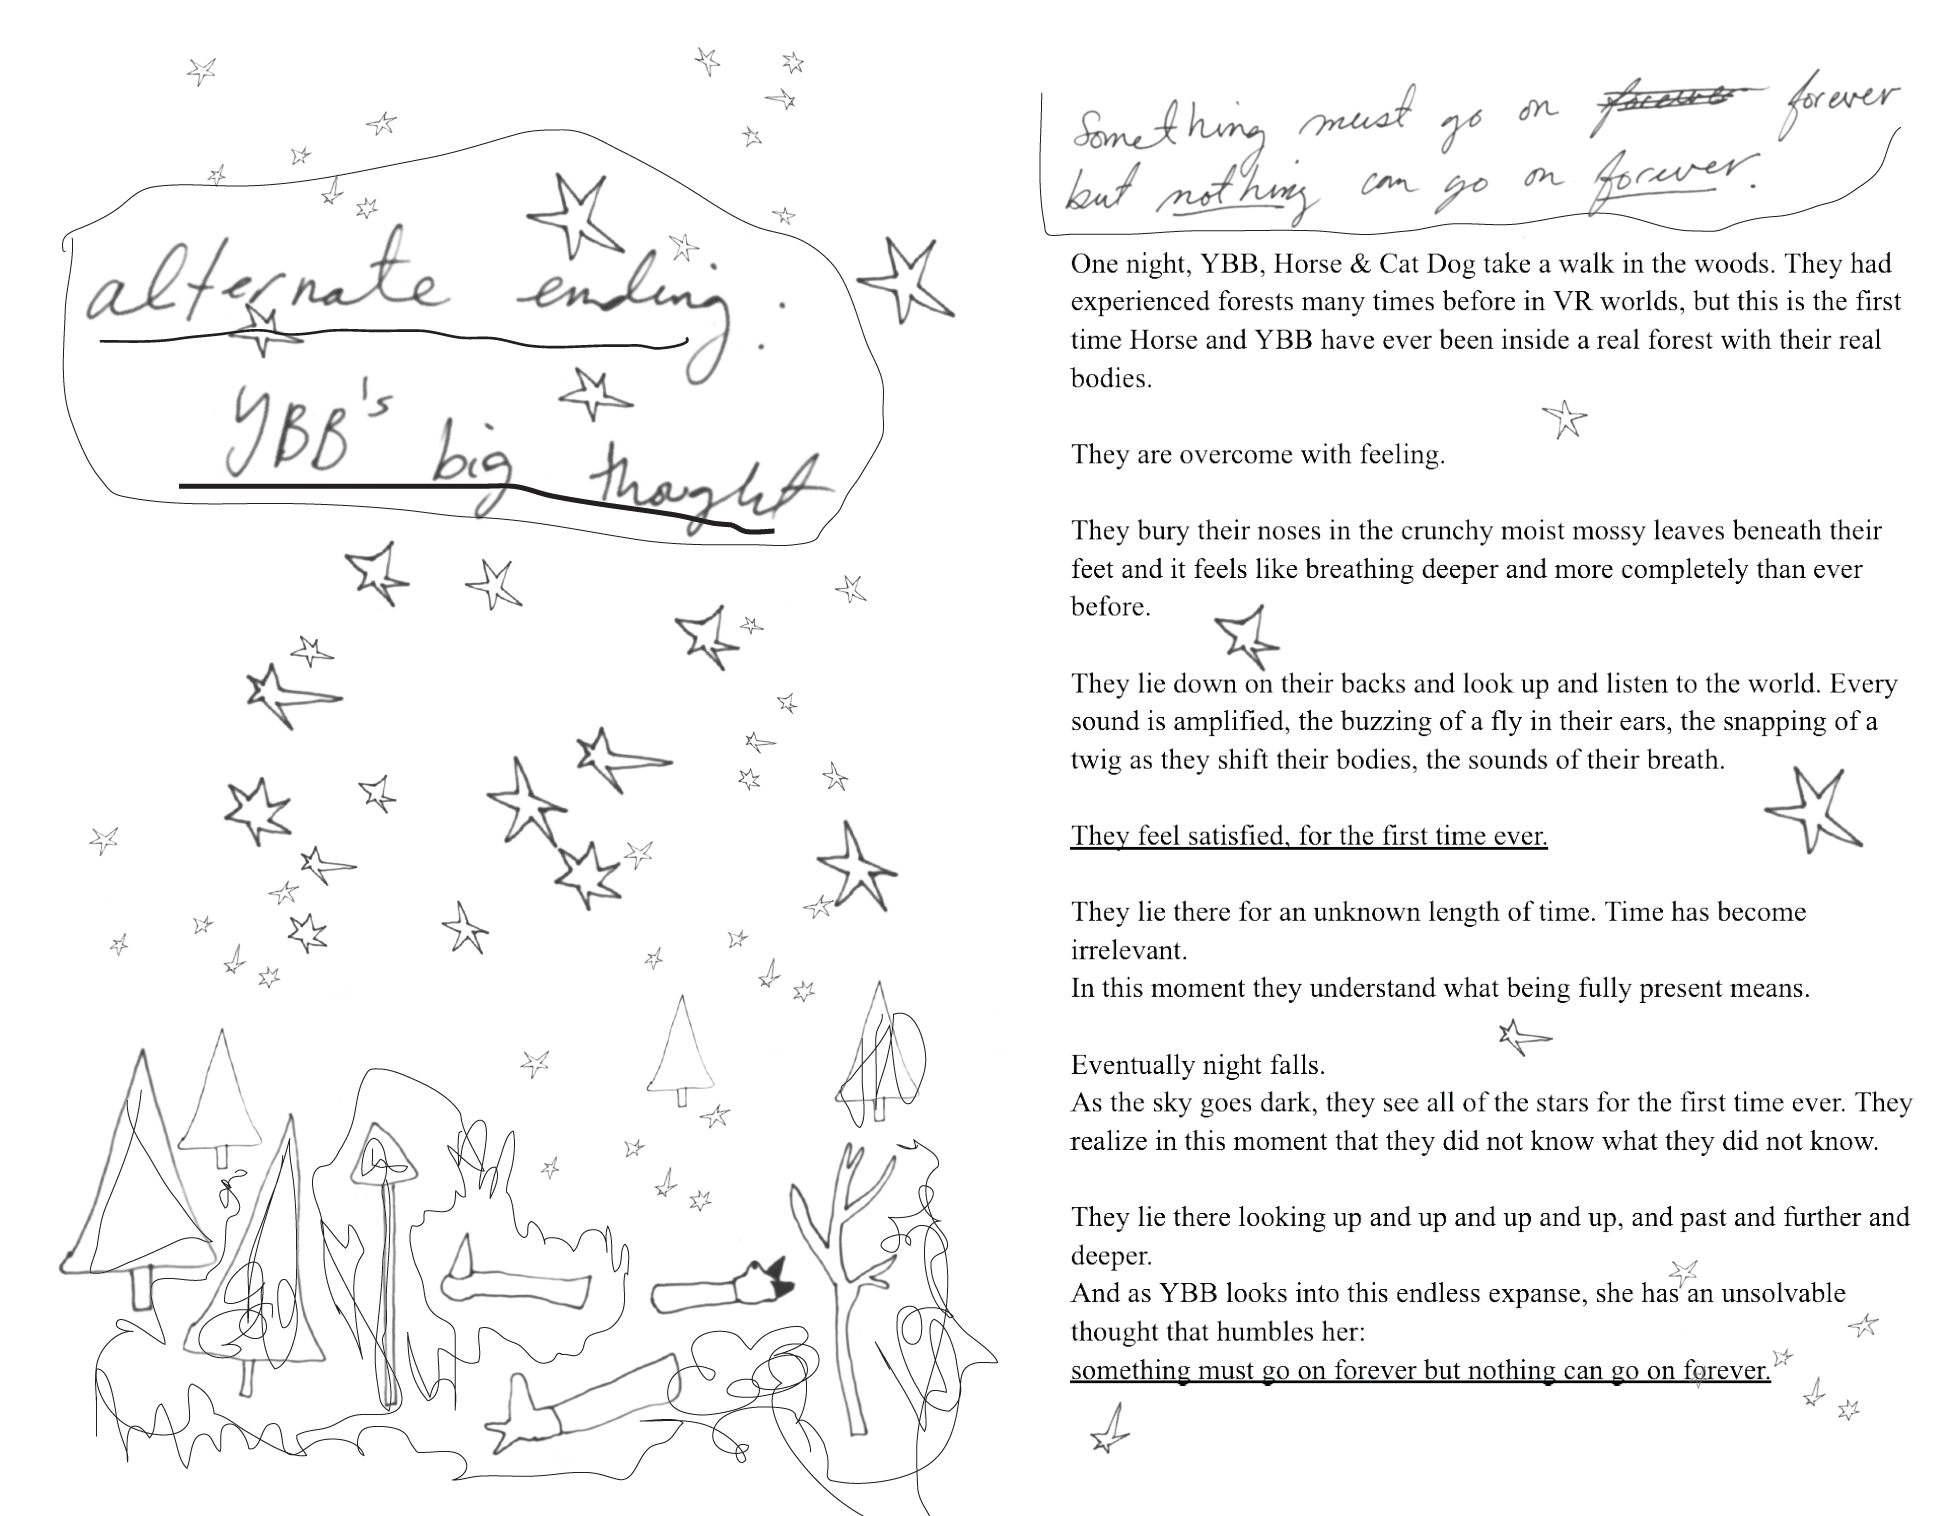 alternate ending:
YBB's big thought
Something must go on forever forever
but nothing can go on forever.
One night, YBB, Horse & Cat Dog take a walk in the woods. They had
experienced forests many times before in VR worlds, but this is the first
time Horse and YBB have ever been inside a real forest with their real
bodies.
They are overcome with feeling.
They bury their noses in the crunchy moist mossy leaves beneath their
feet and it feels like breathing deeper and more completely than ever
before.
They lie down on their backs and look up and listen to the world. Every
sound is amplified, the buzzing of a fly in their ears, the snapping of a
twig as they shift their bodies, the sounds of their breath.
They feel satisfied, for the first time ever.
They lie there for an unknown length of time. Time has become
irrelevant.
In this moment they understand what being fully present means.
Eventually night falls.
As the sky goes dark, they see all of the stars for the first time ever. They
realize in this moment that they did not know what they did not know.
They lie there looking up and up and up and up, and past and further and
deeper.
And as YBB looks into this endless expanse, she has an unsolvable
thought that humbles her:
something must go on forever but nothing can go on forever.